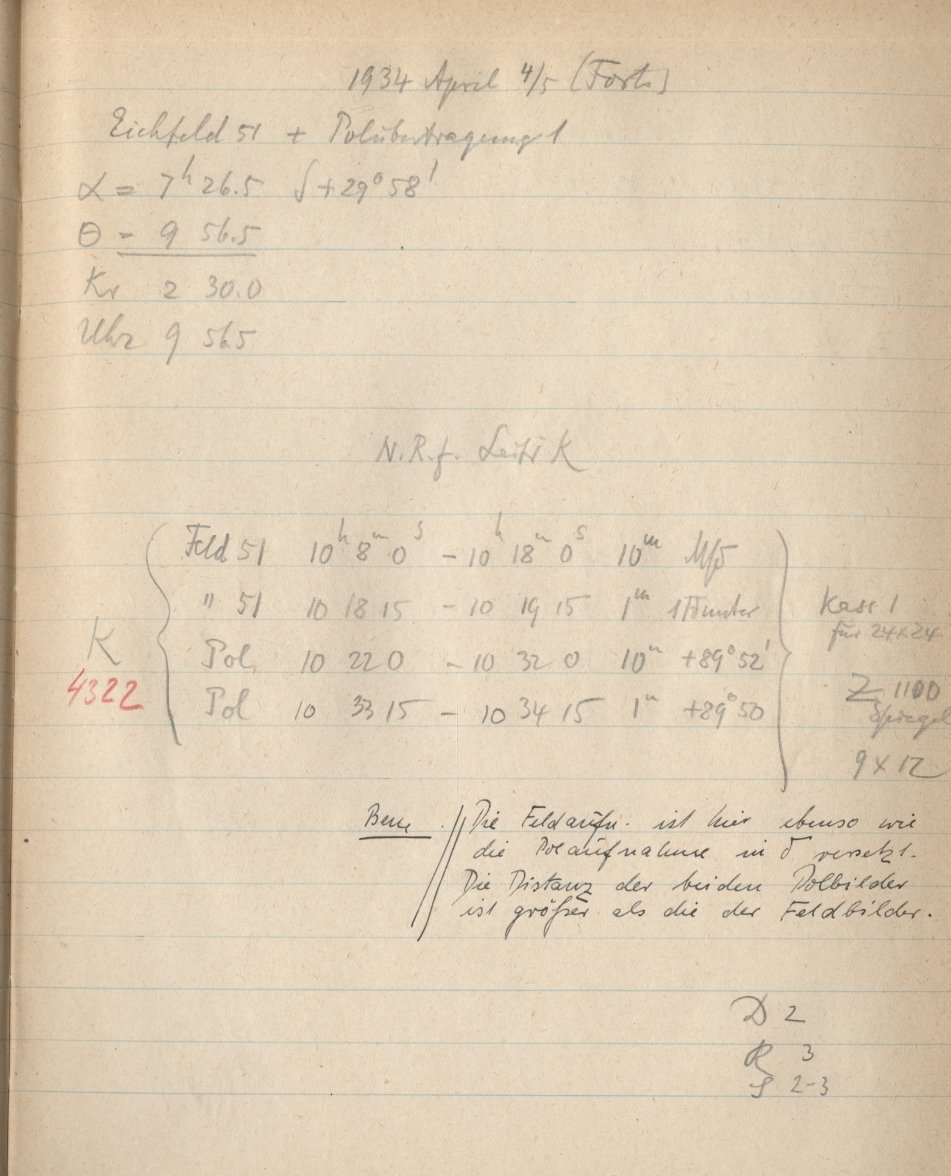 1934 April 4/5 (Forts)
Eichfeld 51 + Polübertragung 1
α = 7h 26.5 δ + 29° 58'
Θ = 9 56.5
Kr 2 30.0
Uhr 9 56.5
N.R.f. K
Feld 51 10h 8m 0s - 10h 18m 0s 10m
" 51 10 18 15 - 10 19 15 1m
Pol 10 22 0 - 10 32 0 10m +89° 52'
Pol 10 33 15 - 10 34 15 1m +89° 50
K
4322
Kass 1
für 24x24
Z 1100
Spiegel
9 x 12
Bem // Die Feldaufn. ist hier ebenso wie
die Polaufnahme in δ versetzt.
Die Distanz der beiden Polbilder
ist größer als die der Feldbilder.
D 2
R 3
S 2-3